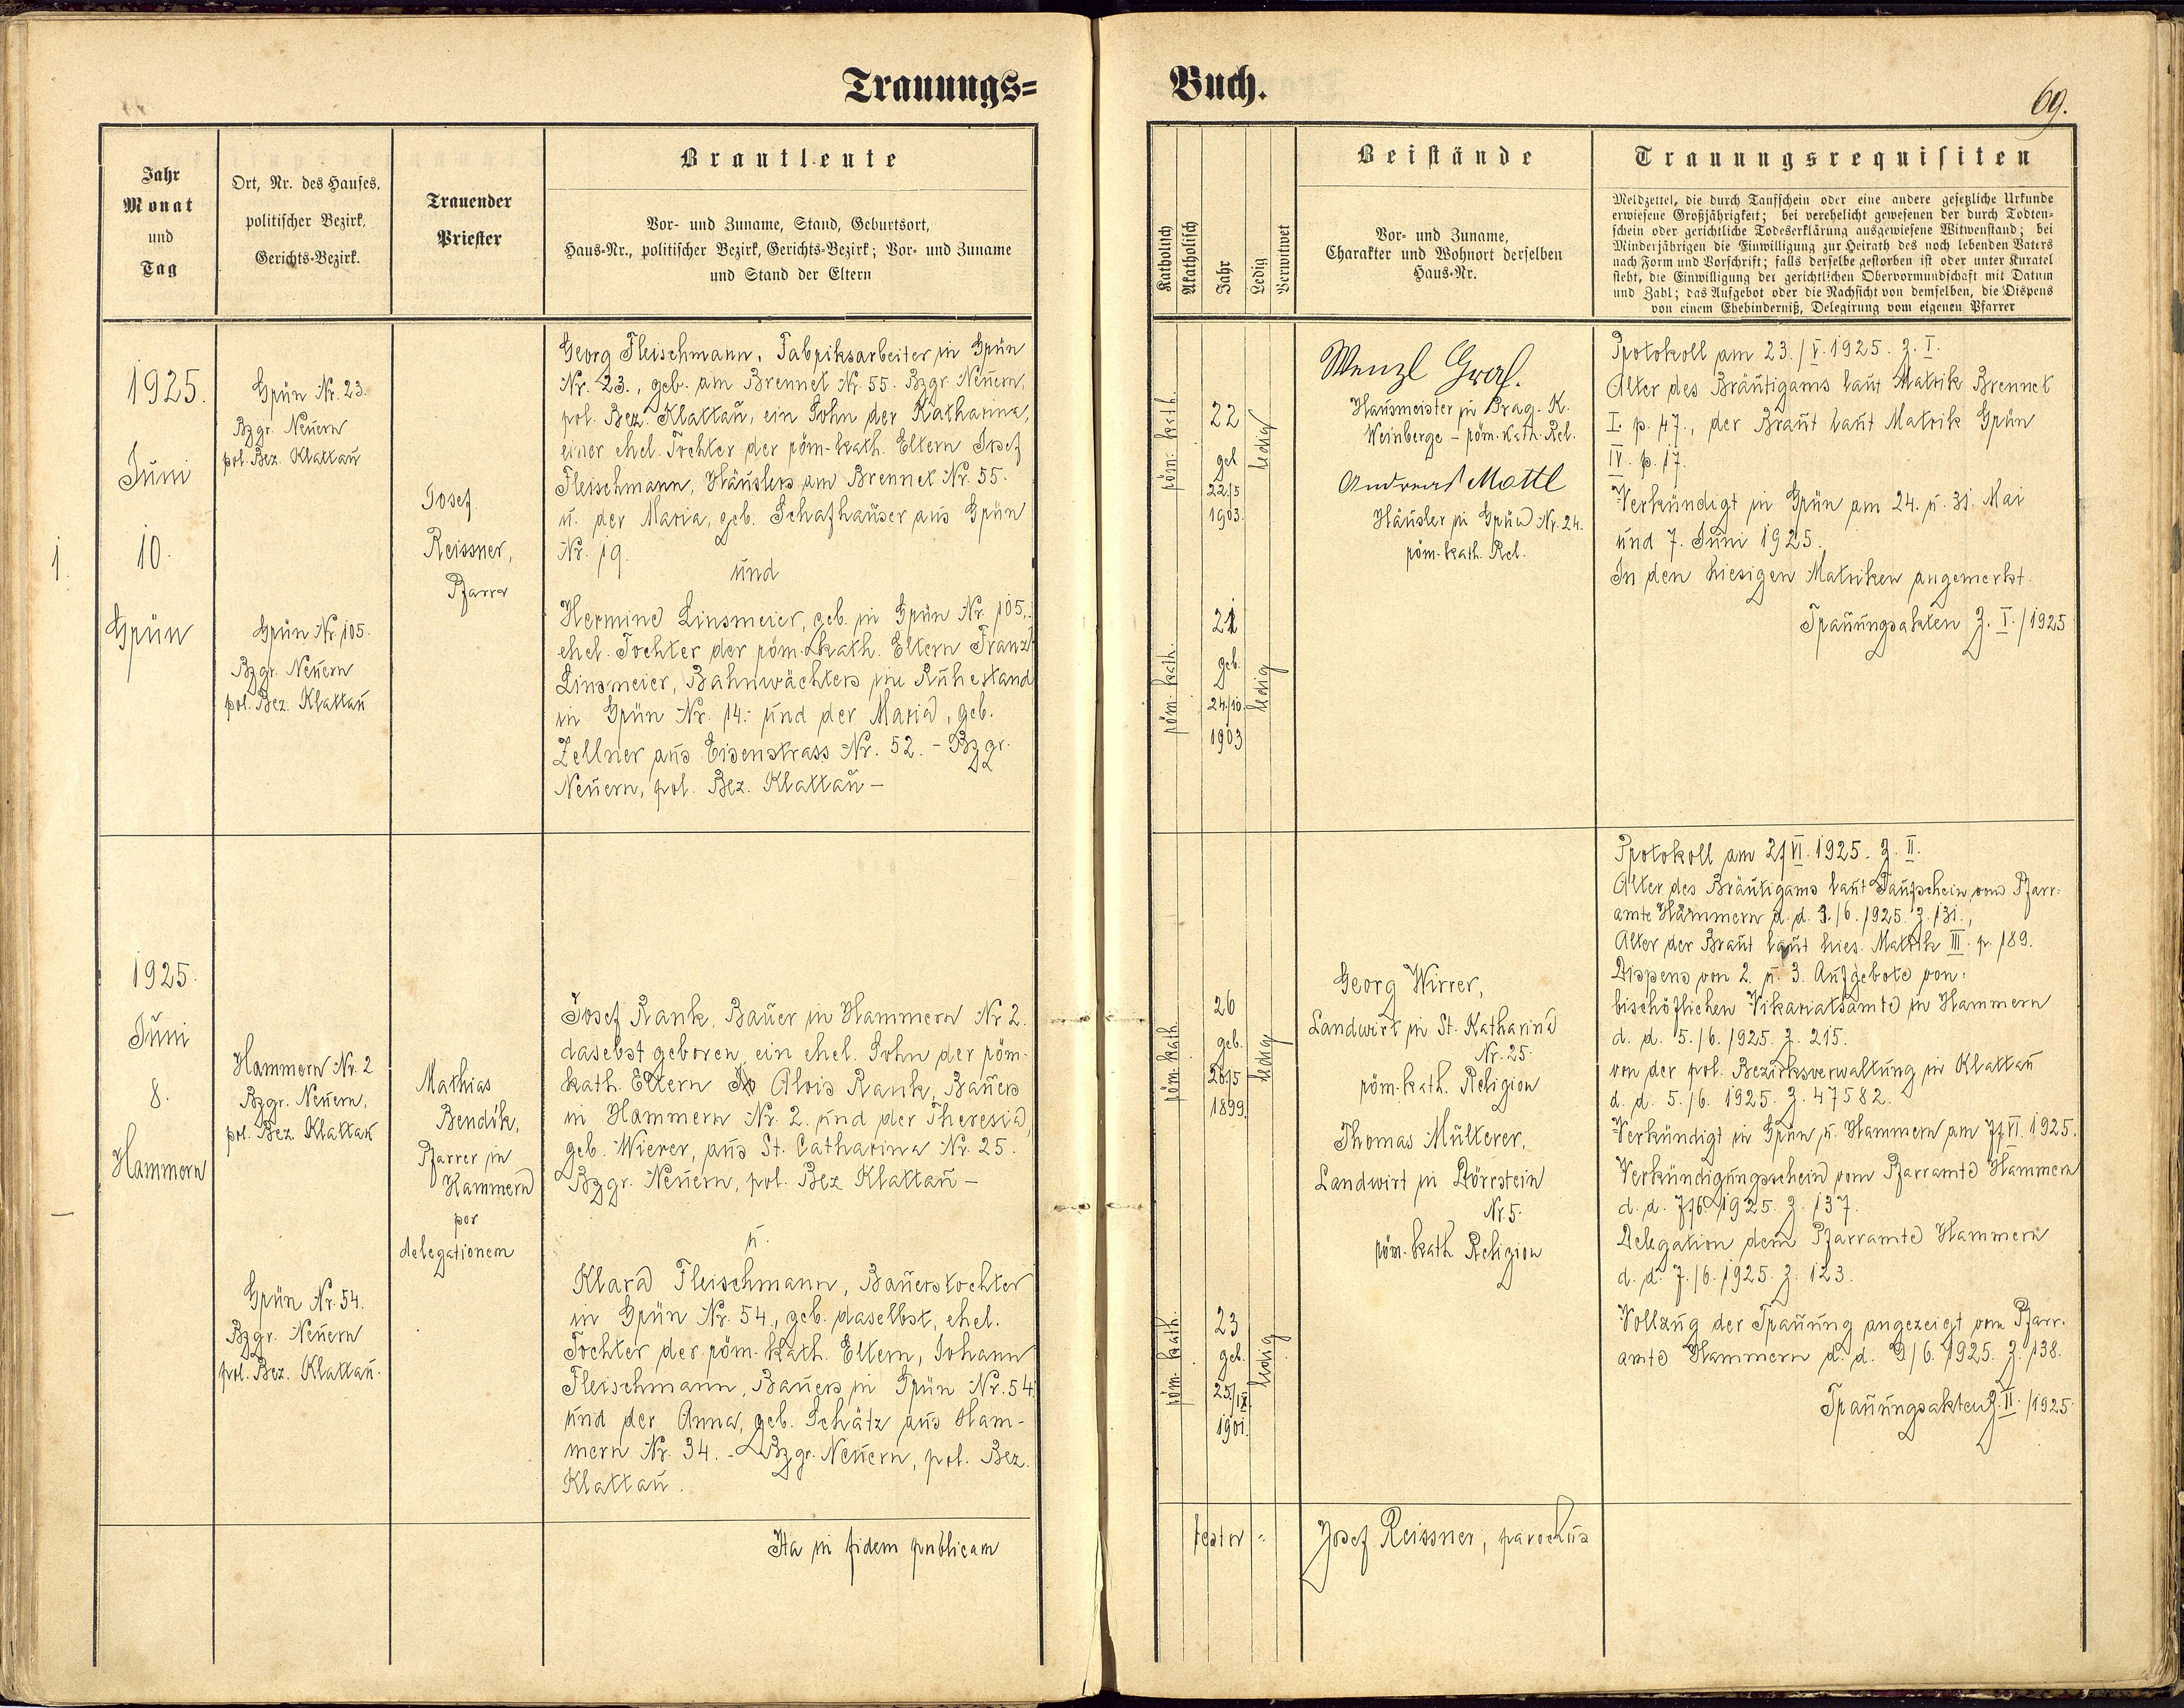 Trauungs=
Jahr
Monat
und
Tag
Ort, Nr. des Hauses,
politischer Bezirk,
Gerichts-Bezirk.
Trauender
Priester
Brautleute
Vor- und Zuname, Stand, Geburtsort,
Haus-Nr., politischer Bezirk, Gerichts-Bezirk; Vor- und Zuname
und Stand der Eltern
1.
1925.
Juni
10.
Grün
Grün Nr. 23.
Bzgr. Neuern
pol. Bez. Klattau
Grün Nr. 105.
Bzgr. Neuern
pol. Bez. Klattau
Josef
Reissner,
Pfarrer
Georg Fleischmann, Fabriksarbeiter in Grün
Nr. 23., geb. am Brennet Nr. 55. Bzgr. Neuern,
pol. Bez. Klattau, ein Sohn der Katharina,
einer ehel. Tochter der röm-kath. Eltern Josef
Fleischmann, Häuslers am Brennet Nr. 55.
u. der Maria, geb. Schafhauser aus Grün
Nr. 19.
und
Hermine Linsmeier, geb. in Grün Nr. 105.,
ehel. Tochter der röm. kath. Eltern Franz
Linsmeier, Bahnwächters im Ruhestand
in Grün Nr. 14. und der Maria, geb.
Zellner aus Eisenstrass Nr. 52. - Bzgr.
Neuern, pol. Bez. Klattau -
1925.
Juni
8.
Hammern
Hammern Nr. 2
Bzgr. Neuern,
pol. Bez. Klattau
Grün Nr. 54.
Bzgr. Neuern
pol. Bez. Klattau.
Mathias
Bendik,
Pfarrer in
Hammern
per
delegationem
Josef Rank, Bauer in Hammern Nr. 2.
daselbst geboren, ein ehel. Sohn der röm-
kath. Eltern Alois Rank, Bauers
in Hammern Nr. 2. und der Theresia,
geb. Wierer, aus St. Catharina Nr. 25.
Bzgr. Neuern, pol. Bez Klattau -
u.
Klara Fleischmann, Bauerstochter
in Grün Nr. 54., geb. daselbst, ehel.
Tochter der röm-kath. Eltern, Johann
Fleischmann, Bauers in Grün Nr. 54.
und der Anna, geb. Schätz aus Ham-
mern Nr. 34. - Bzgr. Neuern, pol. Bez.
Klattau.
Ita in fidem publicam
Buch.
69.
Katholisch
Akatholisch
Jahr
Ledig
Verwitwet
Beistände
Vor- und Zuname,
Charakter und Wohnort derselben
Haus-Nr.
Trauungsrequisiten
Meldzettel, die durch Taufschein oder eine andere gesetzliche Urkunde
erwiesene Großjährigkeit; bei verehelicht gewesenen der durch Todten-
schein oder gerichtliche Todeserklärung ausgewiesene Witwenstand; bei
Minderjährigen die Einwilligung zur Heirath des noch lebenden Vaters
nach Form und Vorschrift; falls derselbe gestorben ist oder unter Kuratel
steht, die Einwilligung der gerichtlichen Obervormundschaft mit Datum
und Zahl; das Aufgebot oder die Nachsicht von demselben, die Dispens
von einem Ehehinderniß, Delegirung vom eigenen Pfarrer
röm. kath.
22
geb
22/5
1903.
ledig
röm. kath.
21
geb.
24./10.
1903
ledig
Wenzl Graf.
Hausmeister in Prag - K.
Weinberge - röm. kath. Rel.
Andreas Mottl
Häusler in Grün Nr. 24.
röm. kath. Rel.
Protokoll am 23./V. 1925. Z. I.
Alter des Bräutigams laut Matrik Brennet
I. p. 47., der Braut laut Matrik Grün
IV. p. 17.
Verkündigt in Grün am 24. u. 31. Mai
und 7. Juni 1925.
In den hiesigen Matriken angemerkt.
Trauungsakten Z. I./1925
röm. kath
26
geb.
26./5
1899.
ledig
röm. kath.
23
geb.
25./IX.
1901.
ledig
Georg Wirrer,
Landwirt in St. Katharina
Nr. 25.
röm. kath. Religion
Thomas Mülterer,
Landwirt in Dörrstein
Nr. 5.
röm. kath. Religion
Protokoll am 2/VI. 1925. Z. II.
Alter des Bräutigams laut Taufschein vom Pfarr-
amte Hammern d. d. 3./6. 1925. Z. 131.,
Alter der Braut laut hies. Matrik III. p. 189.
Dispens von 2. u. 3. Aufgebote von:
bischöflichen Vikariatsamte in Hammern
d. d. 5./6. 1925. Z. 215.
von der pol. Bezirksverwaltung in Klattau
d. d. 5./6. 1925. Z. 47582.
Verkündigt in Grün u. Hammern am 7/VI. 1925.
Verkündigungsschein vom Pfarramte Hammern
d. d. 7./6. 1925. Z. 137.
Delegation dem Pfarramte Hammern
d. d. 7./6. 1925. Z. 123.
Vollzug der Trauung angezeigt vom Pfarr-
amte Hammern d. d. 9/6. 1925. Z. 138.
Trauungsakten Z. II./1925.
testor :
Josef Reissner, parochus